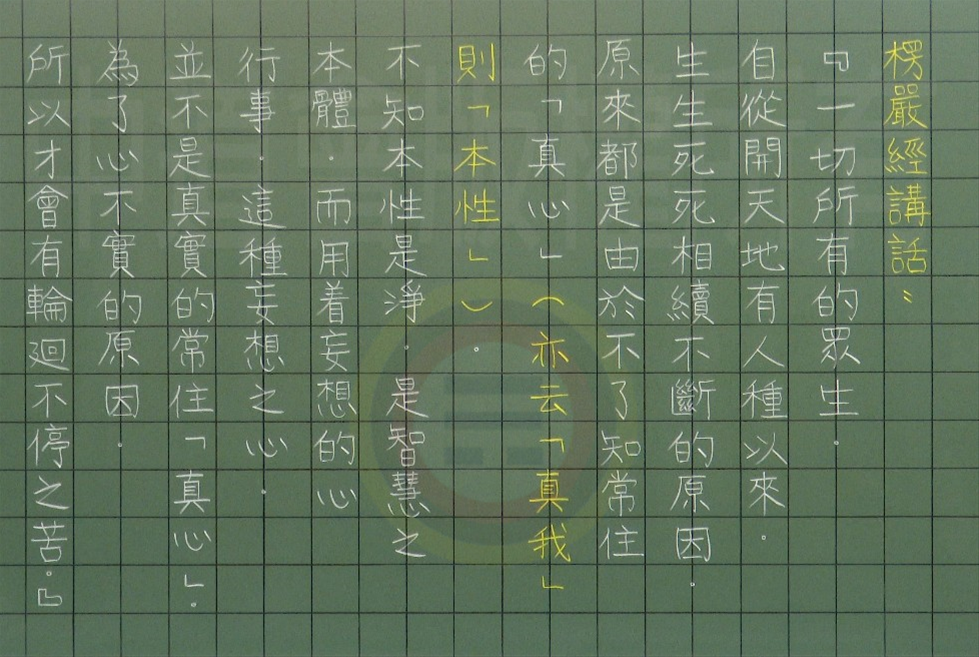 楞嚴經講話〃
『一切所有的眾生。
自從開天地有人種以來。
生生死死相續不斷的原因.
原來都是由於不了知常住
的「真心」（亦云「真我」
則「本性」）。
不知本性是淨.是智慧之
本體.而用着妄想的心
行事.這種妄想之心.
並不是真實的常住「真心」.
為了心不實的原因.
所以才會有輪迴不停之苦.』